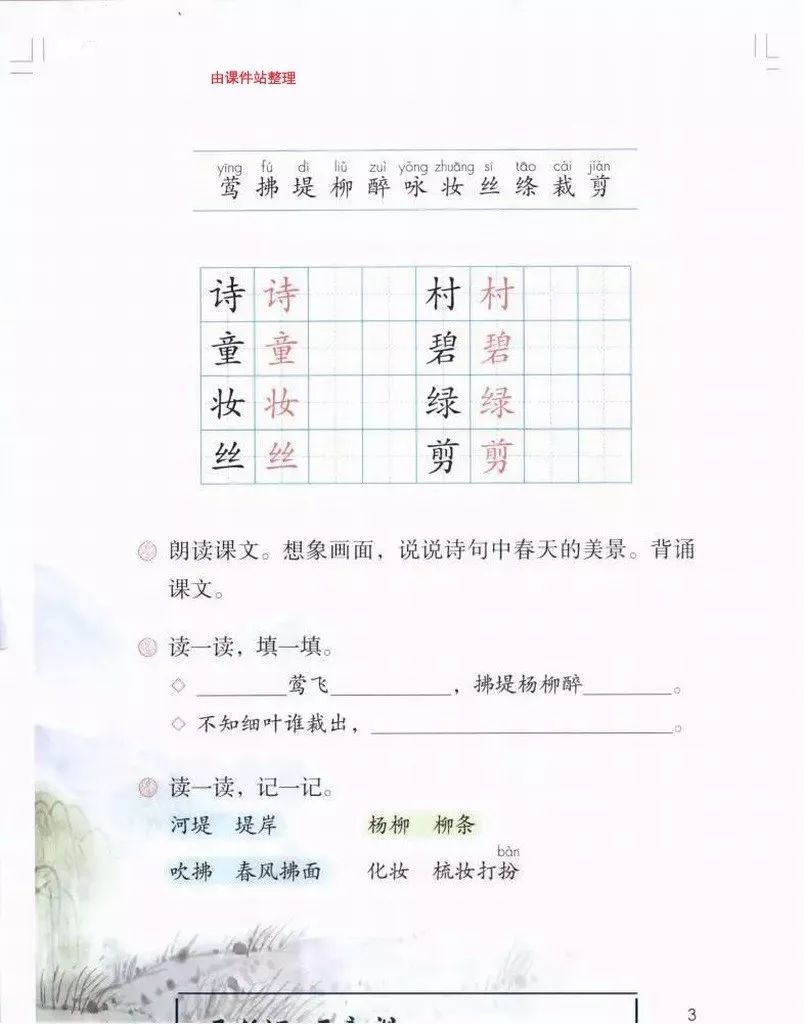 由课件站整理
yīng fú dī liǔ zuì yǒng zhuāng sī tāo cái jiǎn
莺 拂 堤 柳 醉 咏 妆 丝 绦 裁 剪
诗 诗 村 村
童 童 碧 碧
妆 妆 绿 绿
丝 丝 剪 剪
朗读课文。想象画面，说说诗句中春天的美景。背诵
课文。
读一读，填一填。
◇ ________莺飞__________，拂堤杨柳醉________。
◇ 不知细叶谁裁出，__________________________。
读一读，记一记。
河堤 堤岸 杨柳 柳条
bàn
吹拂 春风拂面 化妆 梳妆打扮
3